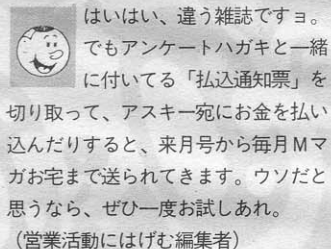 はいはい、違う雑誌ですョ。
でもアンケートハガキと一緒
に付いてる「払込通知票」を
切り取って、アスキー宛にお金を払い
込んだりすると、来月号から毎月Mマ
ガお宅まで送られてきます。ウソだと
思うなら、ぜひ一度お試しあれ。
（営業活動にはげむ編集者）